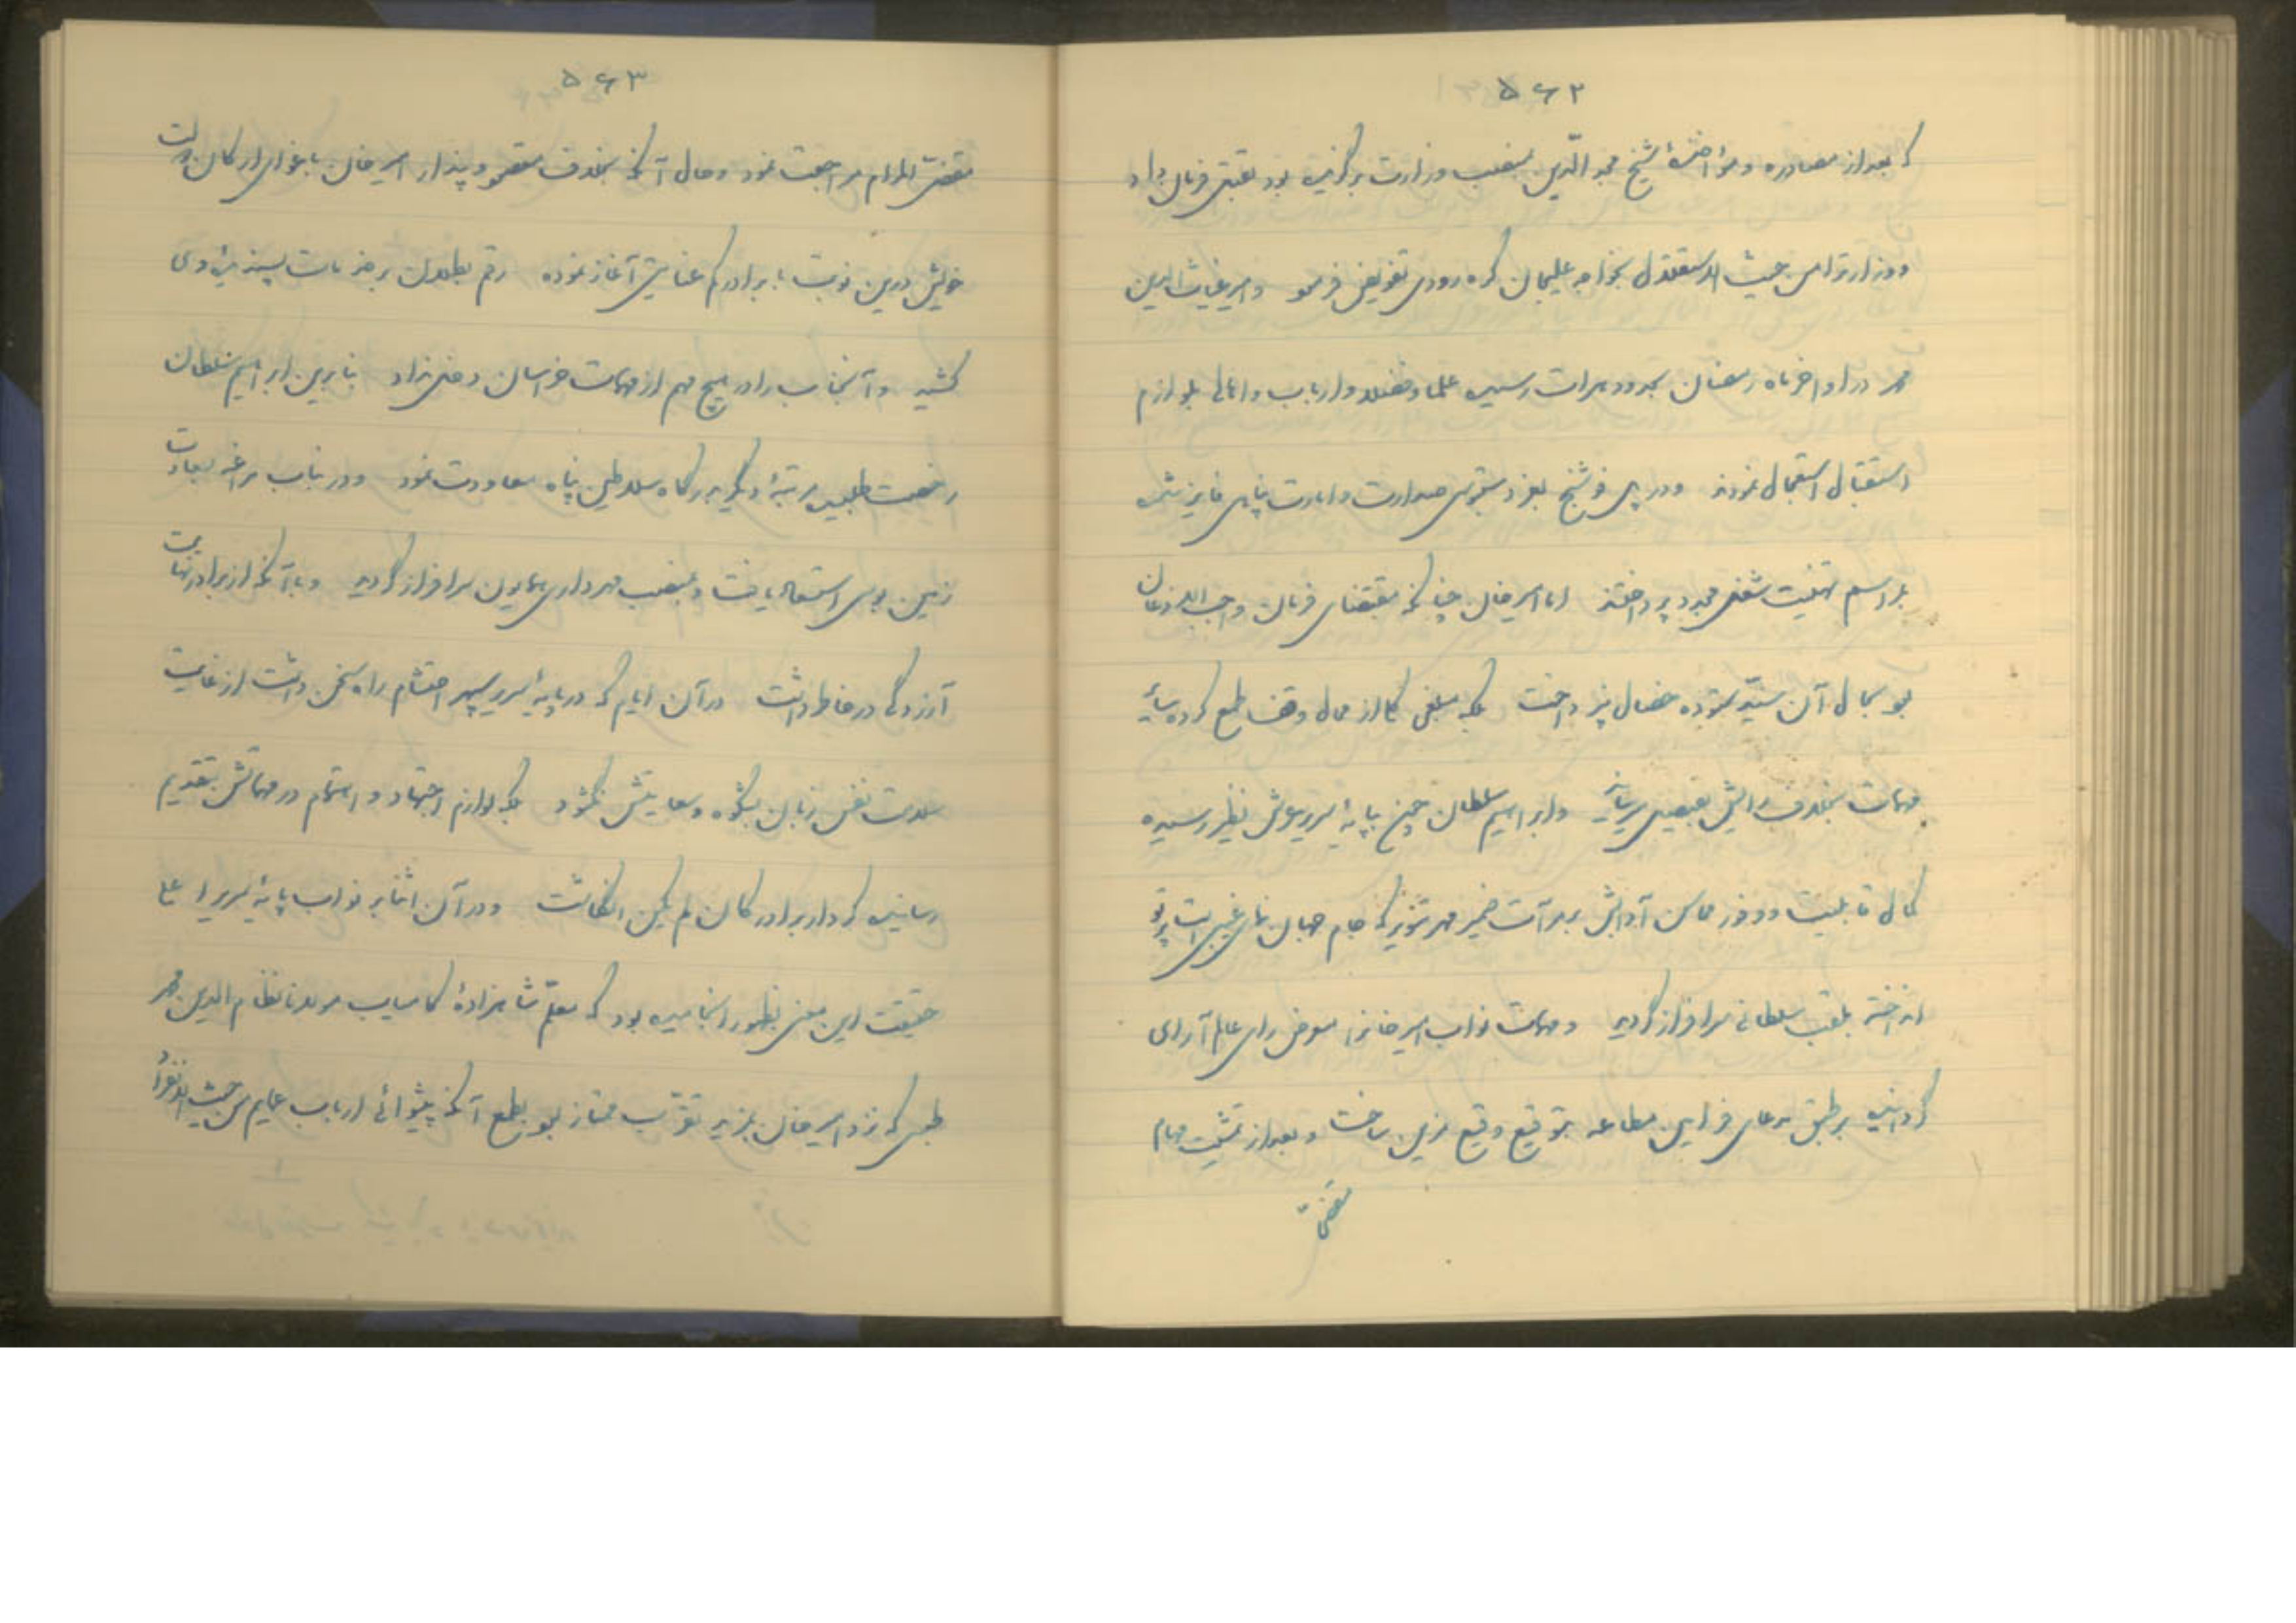 ۵۶۲
که بعد از مصادره و مؤاخذهٔ شیخ مجد الدین بمنصب وزارت برگزیده بود بقتل فرمان داد
و وزارت را من حیث الاستقلال بخواجه علیجان کره رودی تفویض فرمود و امیر غیاث الدین
محمد در اواخر ماه رمضان بحدود هرات رسیده علما و فضلا و ارباب و اهالی بلوازم
استقبال استعجال نمودند و در پل فوشنج بعز دستبوس صدارت و امارت پناهی فایز شده
بمراسم تهنیت شغل مجدد پرداختند اما امیرخان چنانکه مقتضای فرمان واجب الاذعان
بود بحال آن سید ستوده خصال نپرداخت بلکه مبلغی کلی از مال وقف طمع کرده سایر
مهمات بخلاف رایش بفیصل رسانید و ابراهیم سلطان چون بپایهٔ سریر عرش نظیر رسیده
کمال قابلیت و وفور محاسن آدابش بر مرآت ضمیر مهر تنویر که جام جهان نمای غیبی است پرتو
انداخته بلقب سلطانی سرافراز گردید و مهمات نواب امیرخانرا معروض رای عالم آرای
گردانیده بر طبق مدعای فرامین مطاعه بتوقیع وقیع مزین ساخت و بعد از تمشیت مهام
مقضی
۵۶۳
مقضی المرام مراجعت نمود و حال آنکه بخلاف مقصود و پندار امیرخان باغوای ارکان دولت
خویش درین نوبت با برادر کم عنایتی آغاز نموده رقم بطلان بر خدمات پسندیدهٔ وی
کشید و آنجناب را در هیچ مهم از مهمات خراسان دخل نداد بنابرین ابراهیم سلطان
رخصت طلبیده مرتبهٔ دیگر بدرگاه سلاطین پناه معاودت نمود و در ییلاق مراغه بسعادت
زمین بوس استسعاد یافت و بمنصب مهرداری همایون سرافراز گردید و با آنکه از برادر نهایت
آزردگی در خاطر داشت در آن ایام که در پایهٔ سریر سپهر احتشام راه سخن داشت از غایت
سلامت نفس زبان بشکوه و سعایتش نگشود بلکه لوازم اجتهاد و اهتمام در مهماتش بتقدیم
رسانیده کردار برادر کان لم یکن انگاشت و در آن اثنا بر نواب پایهٔ سریر اعلی
حقیقت این معنی بظهور انجامیده بود که معلم شاهزادهٔ کامیاب مولانا نظام الدین محمد
طبسی که نزد امیرخان بمزید تقرب ممتاز بود بطمع آنکه پیشوائی ارباب عمایم من حیث الانفراد